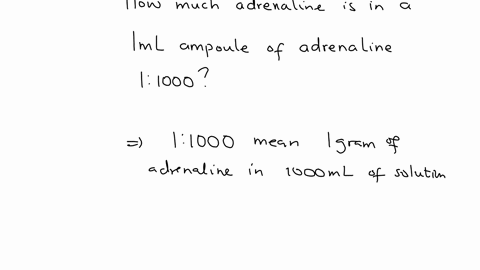 How much adrenaline is in a
1mL ampoule of adrenaline
1:1000?
=) 1:1000 mean 1gram of
adrenaline in 1000mL of solution